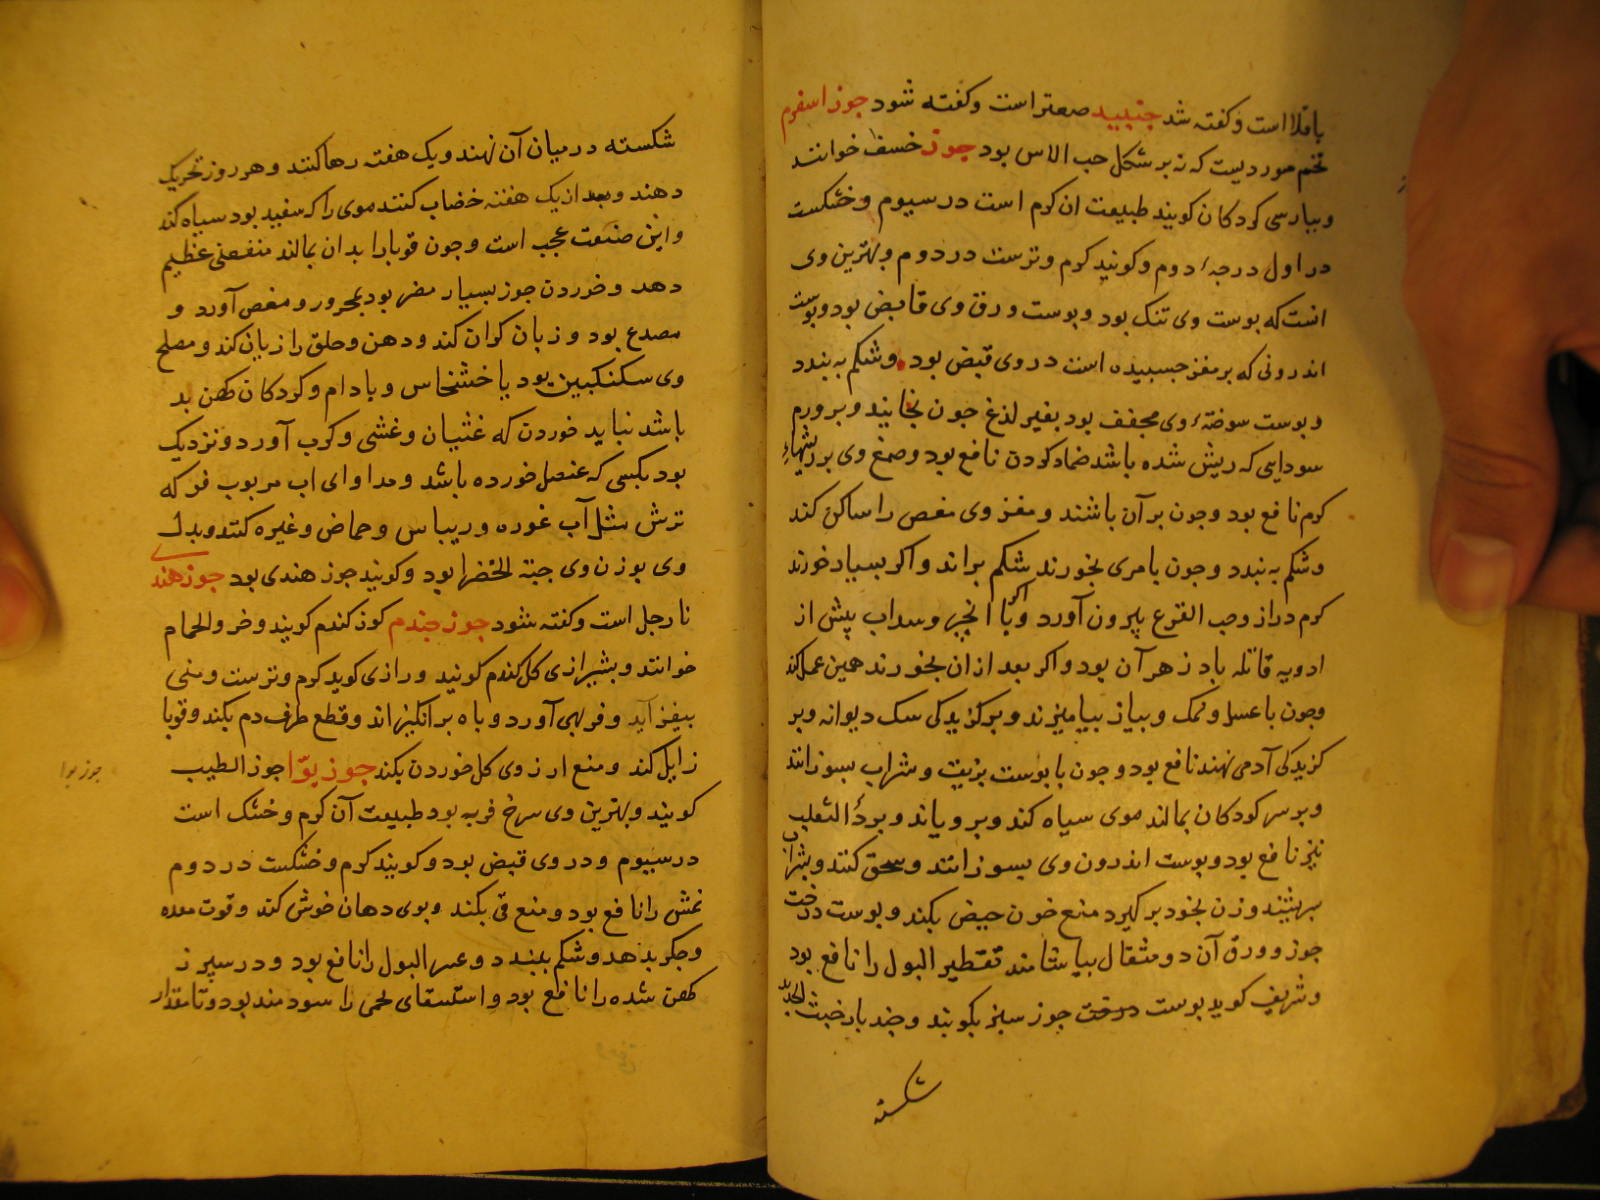 باقلا است و کفته شد جنبید صعتر است و کفته شود جوز اسفرم
تخم مورد است که نه بر شکل حب الاس بود جوز خسف خوانند
و بپارسی کردکان کویند طبیعت ان کرم است در سیوم و خشکست
در اول درجهٔ دوم و کویند کرم و ترست در دوم و بهترین وی
انست که بوست وی تنک بود و بوست و رق وی قابض بود و بوست
اندرونی که بر مغز جسبیده است در وی قبض بود و شکم به بندد
و بوست سوختهٔ وی مجفف بود بغیر لذغ جون بخایند و بر ورم
سودایی که ریش شده باشد ضماد کردن نافع بود و صمغ وی بر ریشهاء
کرم نافع بود و جون بر آن باشند و مغز وی مغص را ساکن کند
و شکم به بندد و جون بامری بخورند شکم براند و اکر بسیار خورند
کرم دراز و حب القرع بیرون آورد و اکر با انجیر و سداب پیش از
ادویه قاتله باد زهر آن بود و اکر بعد از ان بخورند همین عمل کند
و جون با عسل و نمک و بیاز بیامیزند و بر کزیدکی سک دیوانه و بر
کزیدکی آدمی نهند نافع بود و جون با بوست بزیت و شراب بسوزانند
و بر سر کودکان بمالند موی سیاه کند و برویاند و بودٔ الثعلب
نیز نافع بود و بوست اندرون وی بسوزانند و سحق کنند و بشراب
بسرشند و زن بخود بر کیرد منع خون حیض بکند و بوست درخت
جوز و ورق آن دو مثقال بیاشامند تقطیر البول را نافع بود
و شریف کوید بوست درخت جوز سبز بکوبند و جند بار خبث الحدید
شکسته
شکسته در میان آن نهند و یک هفته رها کنند و هر روز تحریک
دهند و بعد از یک هفته خضاب کنند موی را که سفید بود سیاه کند
و این صنعت عجب است و جون قوبا را بدان بمالند منفعتی عظیم
دهد و خوردن جوز بسیار مضر بود بمحرور و مغص آورد و
مصدع بود و زبان کران کند و دهن و حلق را زیان کند و مصلح
وی سکنکبین بود یا خشخاس و بادام و کردکان کهن بد
باشد نباید خوردن که غثیان و غشی و کرب آورد و نزدیک
بود بکسی که عنصل خورده باشد و مداوای اب مربوب فر که
ترش مثل آب غوره و ریباس و حماض و غیره کنند و بدل
وی بوزن وی حبة الخضرا بود و کویند جوز هندی بود جوز هند
نارجل است و کفته شود جوز جندم کوز کندم کویند و خرو الحمام
خوانند و بشیرازی کل کندم کویند و رازی کوید کرم و ترست و منی
بیفزاید و فربهی آورد و باه برانکیزاند و قطع طرف دم بکند و قوبا
زایل کند و منع ارزوی کل خوردن بکند جوز بوّا جوز الطیب
جوز بوا
کویند و بهترین وی سرخ فربه بود طبیعت آن کرم و خشک است
در سیوم و در وی قبض بود و کویند کرم و خشکست در دوم
نمش را نافع بود و منع قی بکند و بوی دهان خوش کند و قوت معده
و جکر بدهد و شکم ببندد و عسر البول را نافع بود و در سبرز
کهن شده را نافع بود و استسقای لحمی را سودمند بود و تا مقدار